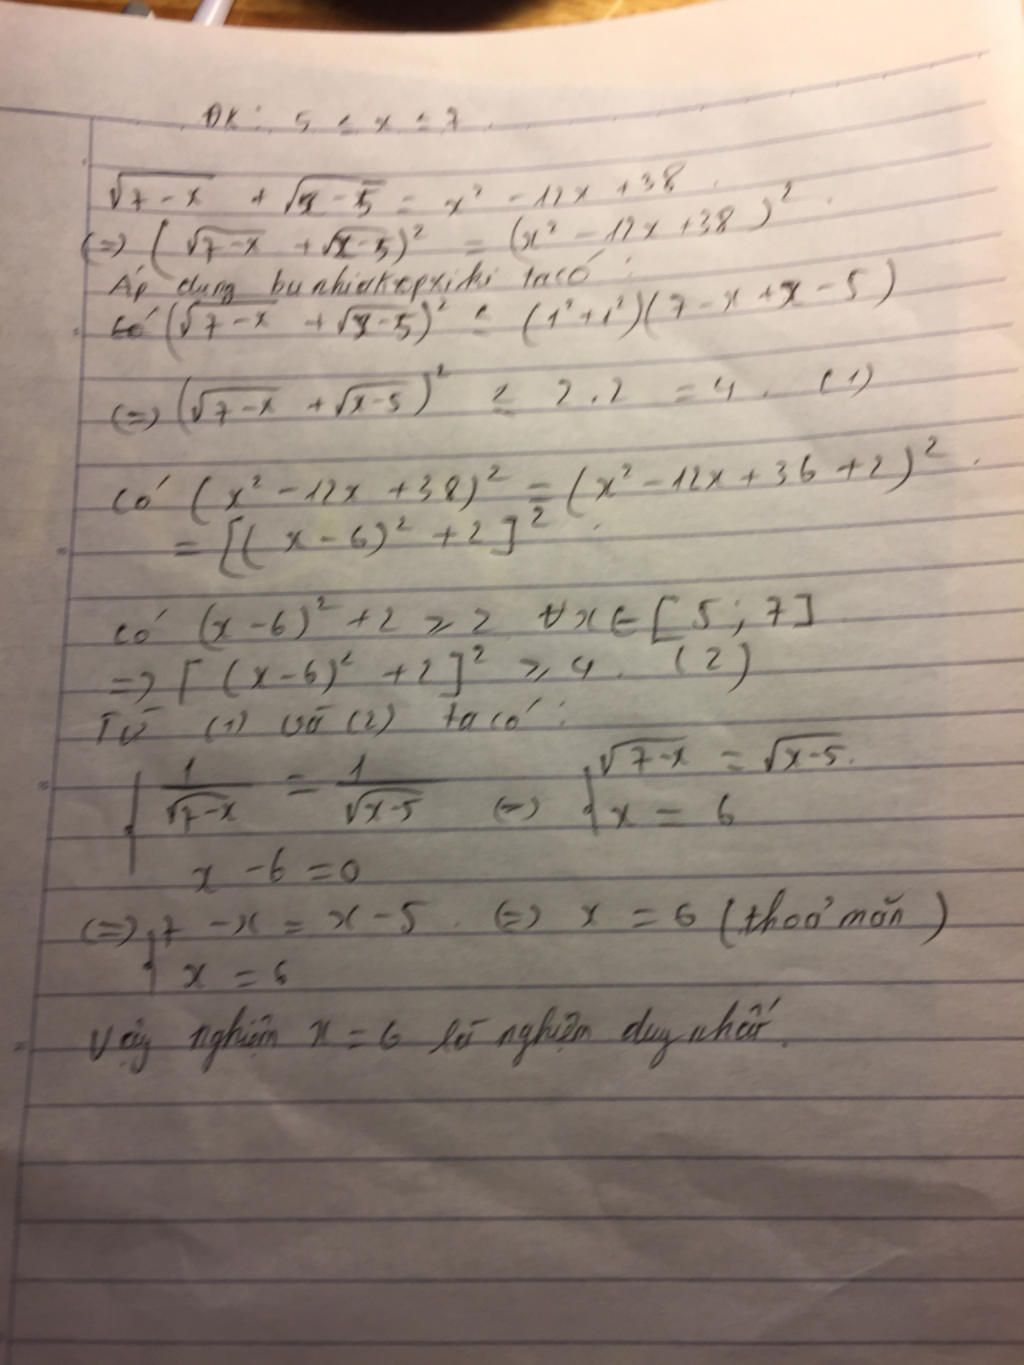 ĐK: 5 ≤ x ≤ 7.
√(7-x) + √(x-5) = x² - 12x + 38.
(=) (√(7-x) + √(x-5))² = (x² - 12x + 38)².
Áp dụng bunhiakopxiki ta có:
có (√(7-x) + √(x-5))² ≤ (1²+1²)(7-x+x-5)
(=) (√(7-x) + √(x-5))² ≤ 2.2 = 4. (1)
có (x² - 12x + 38)² = (x² - 12x + 36 + 2)².
= [(x-6)² + 2]².
có (x-6)² + 2 ≥ 2 ∀x∈[5;7]
=> [(x-6)² + 2]² ≥ 4. (2)
Từ (1) và (2) ta có:
{ 1/√(7-x) = 1/√(x-5) (=) { √(7-x) = √(x-5).
x - 6 = 0 x = 6
(=) { 7 - x = x - 5. (=) x = 6 (thoả mãn)
x = 6
Vậy nghiệm x = 6 là nghiệm duy nhất.